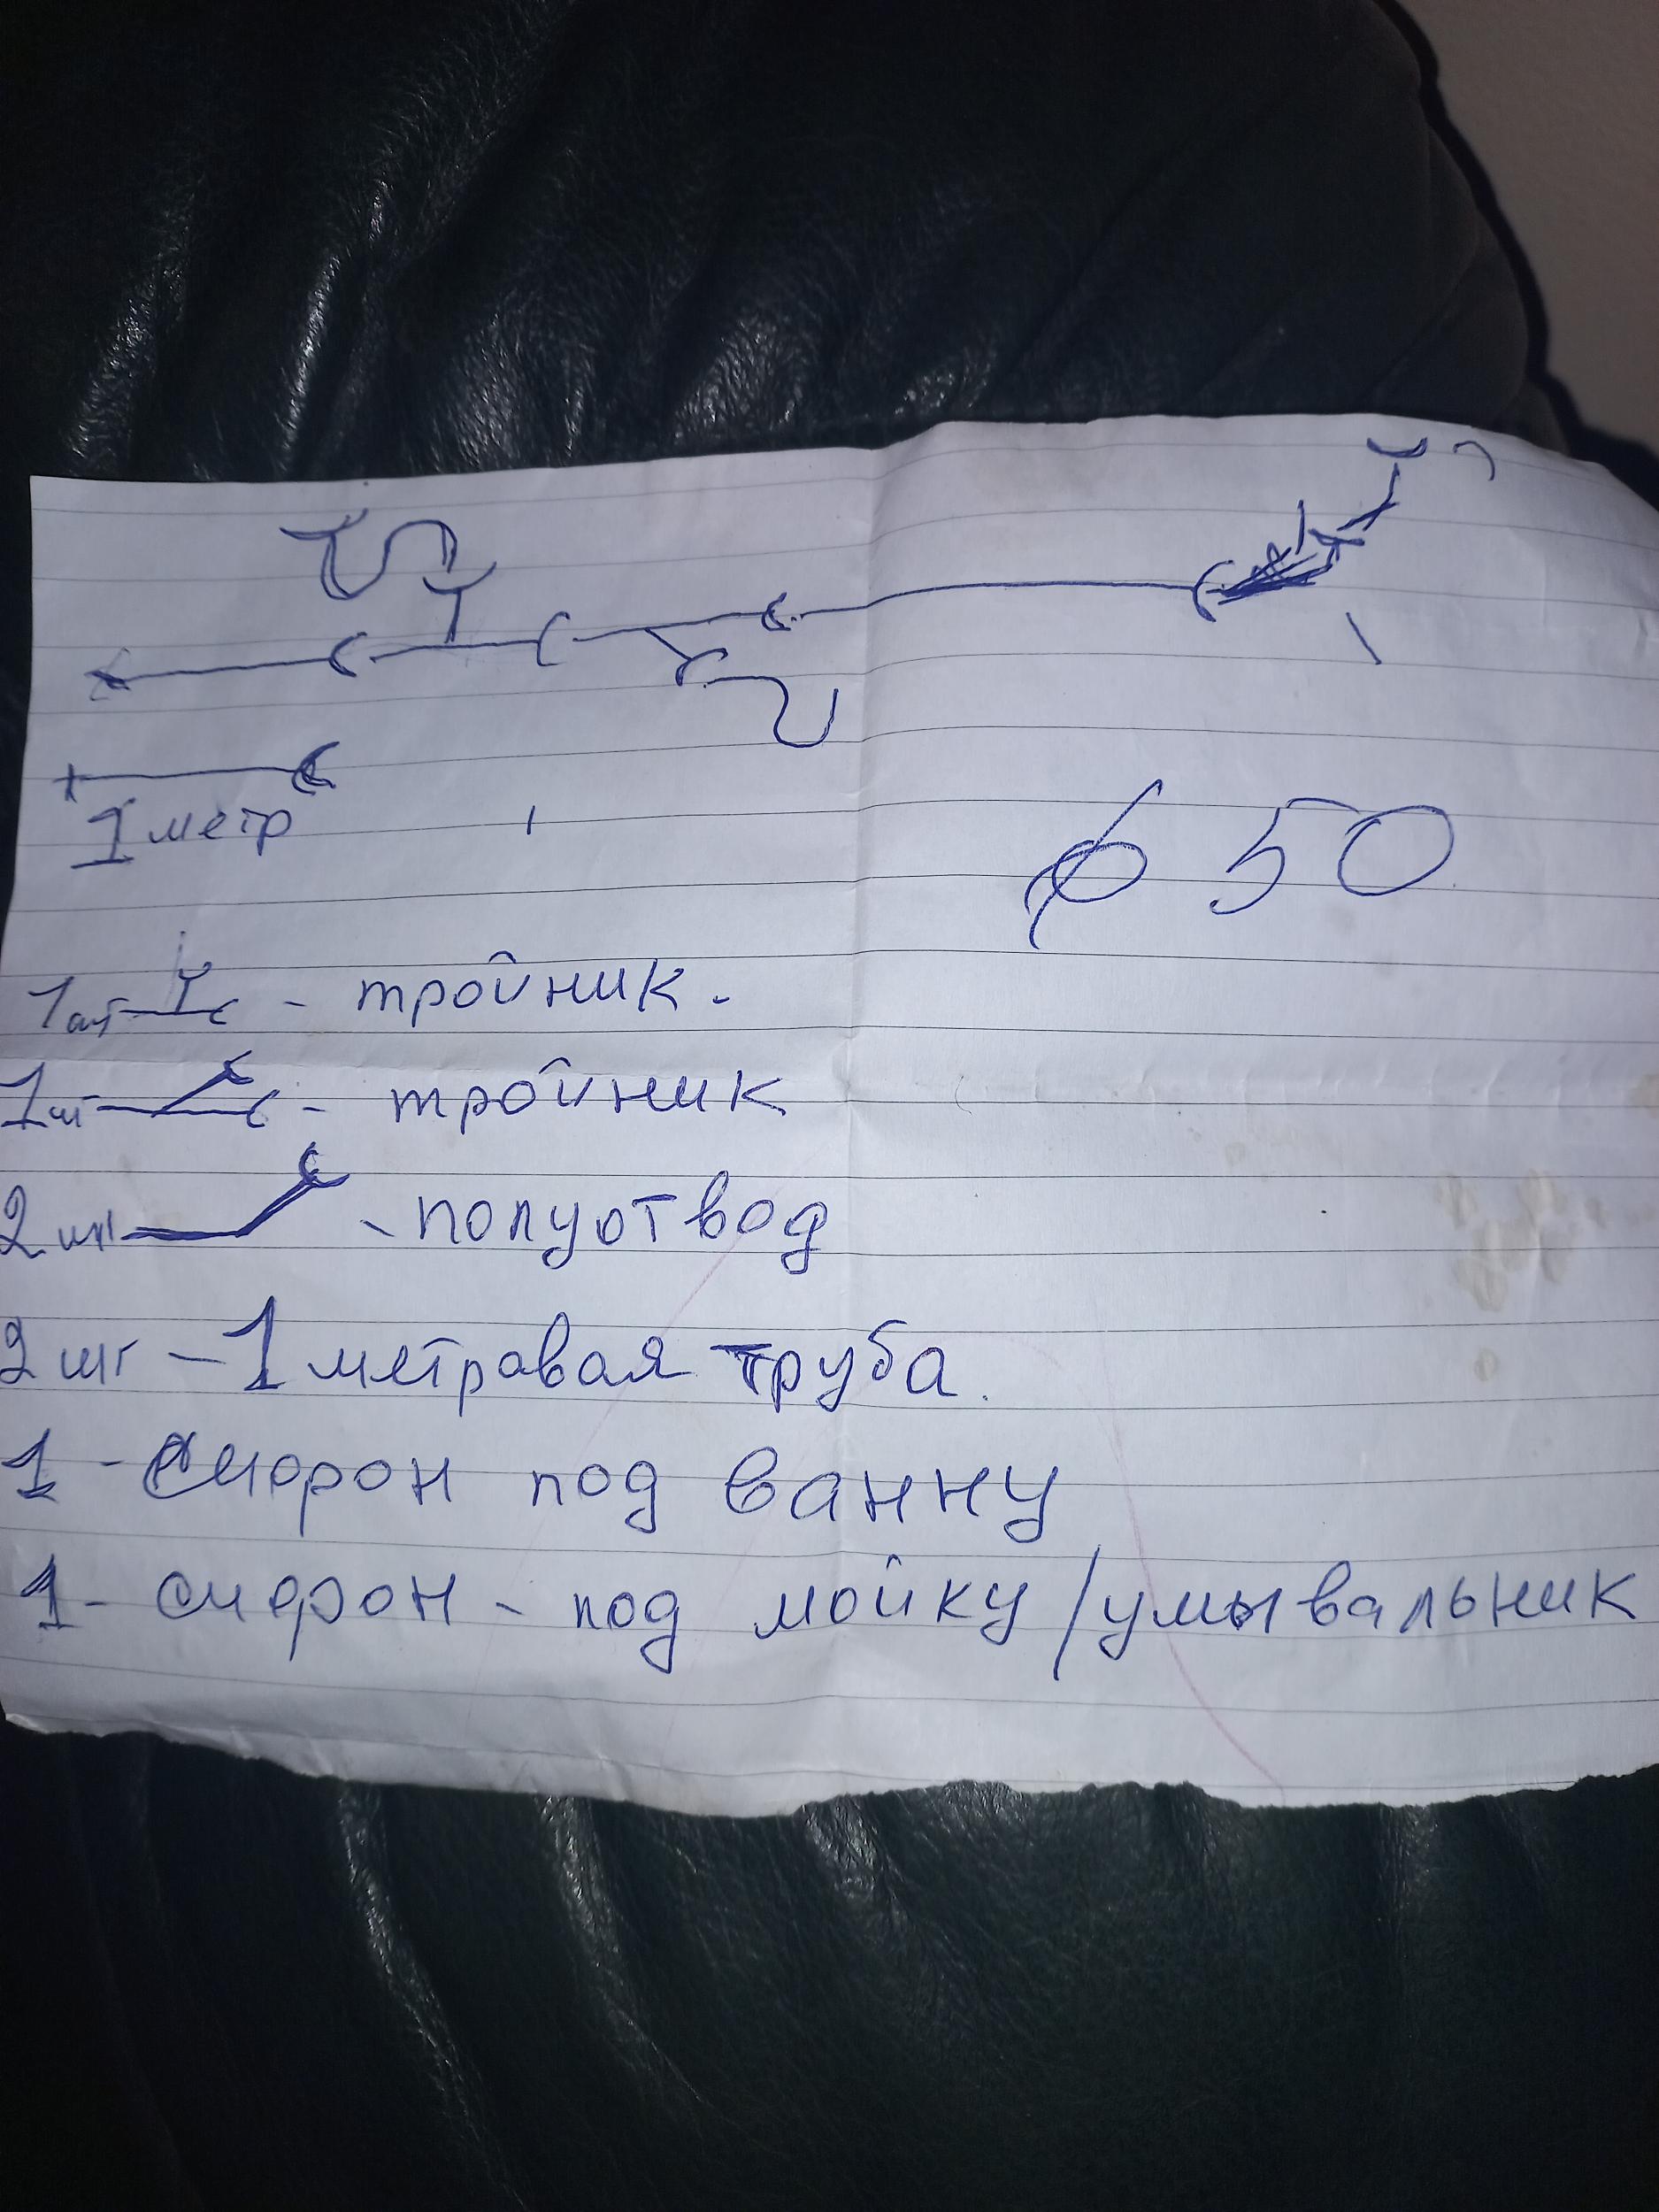 1 метр
ø 50
1 шт - тройник.
1 шт - тройник
2 шт - полуотвод
2 шт - 1 метровая труба.
1 - сифон под ванну
1 - сифон - под мойку / умывальник